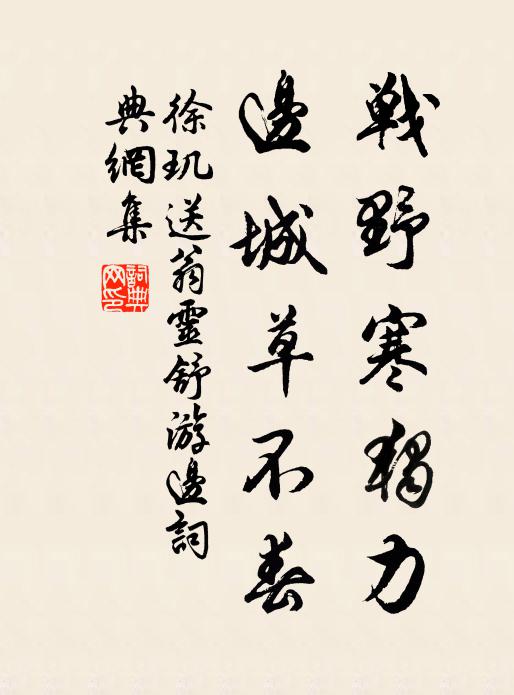 戦野寒獨力
邊城草不春
徐玑送翁靈舒游邊詞
典網集
詞典
网印